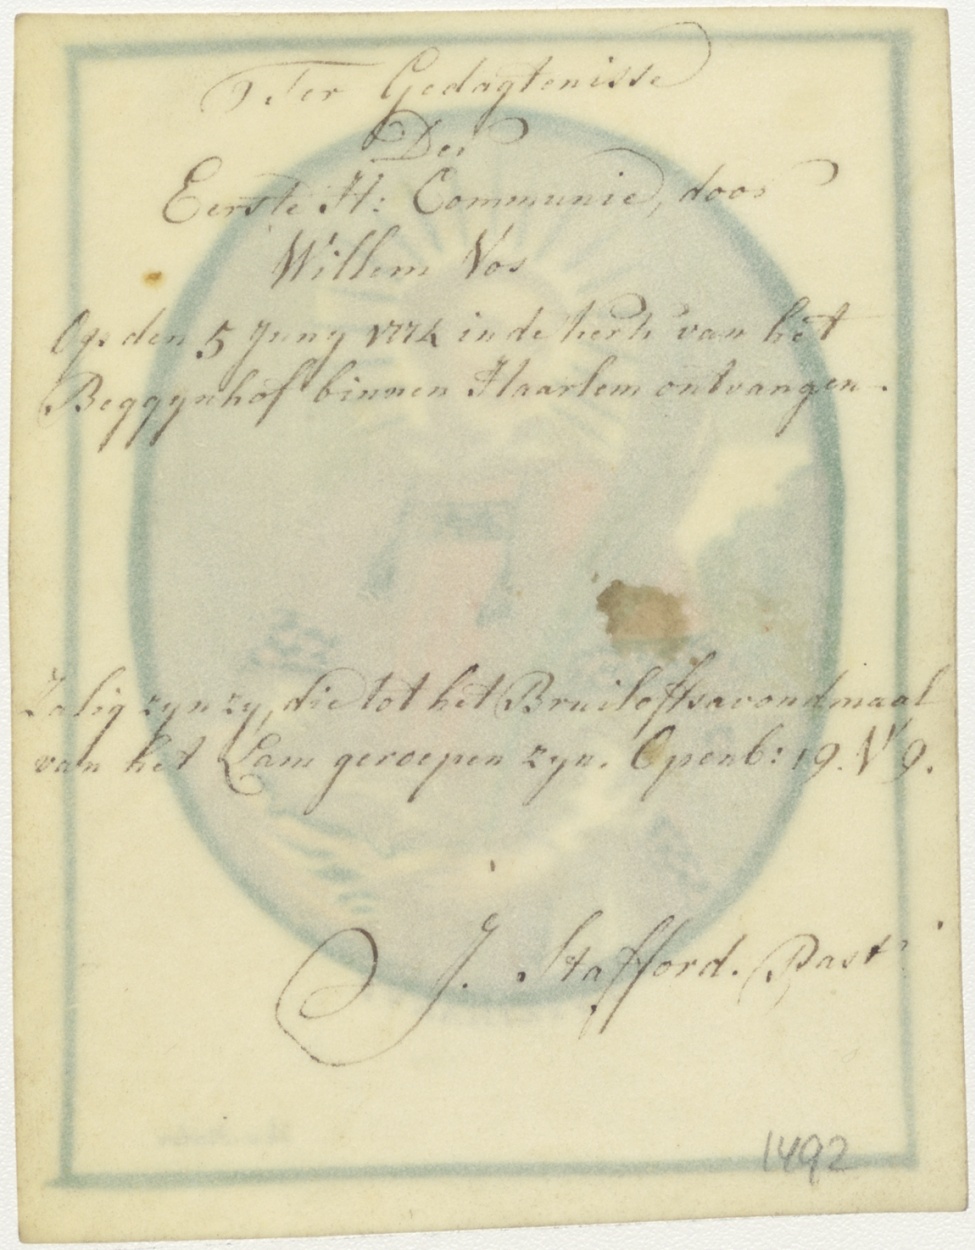 Ter Gedagtenisse
Der
Eerste H: Communie, door
Willem Vos
Op den 5 Juny 1774 in de kerk van het
Beggynhof binnen Haarlem ontvangen.
Zalig zyn zy, die tot het Bruiloftsavondmaal
van het Lam geroepen zyn. Openb: 19. V 9.
J. Stafford. Past
1492